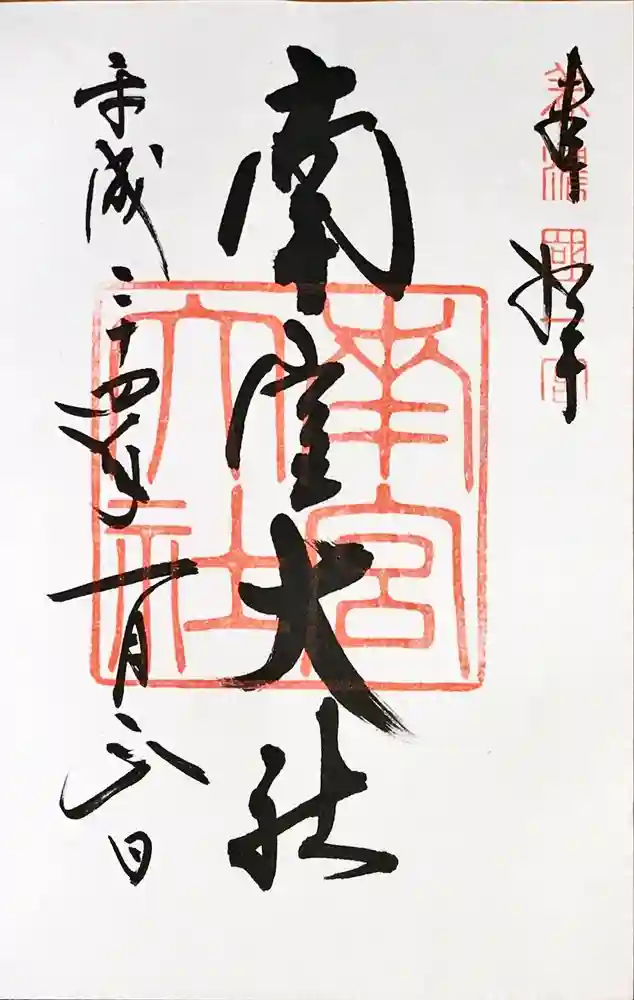 奉拝
美濃國一宮
南宮大社
南宮大社
平成二十四年一月六日